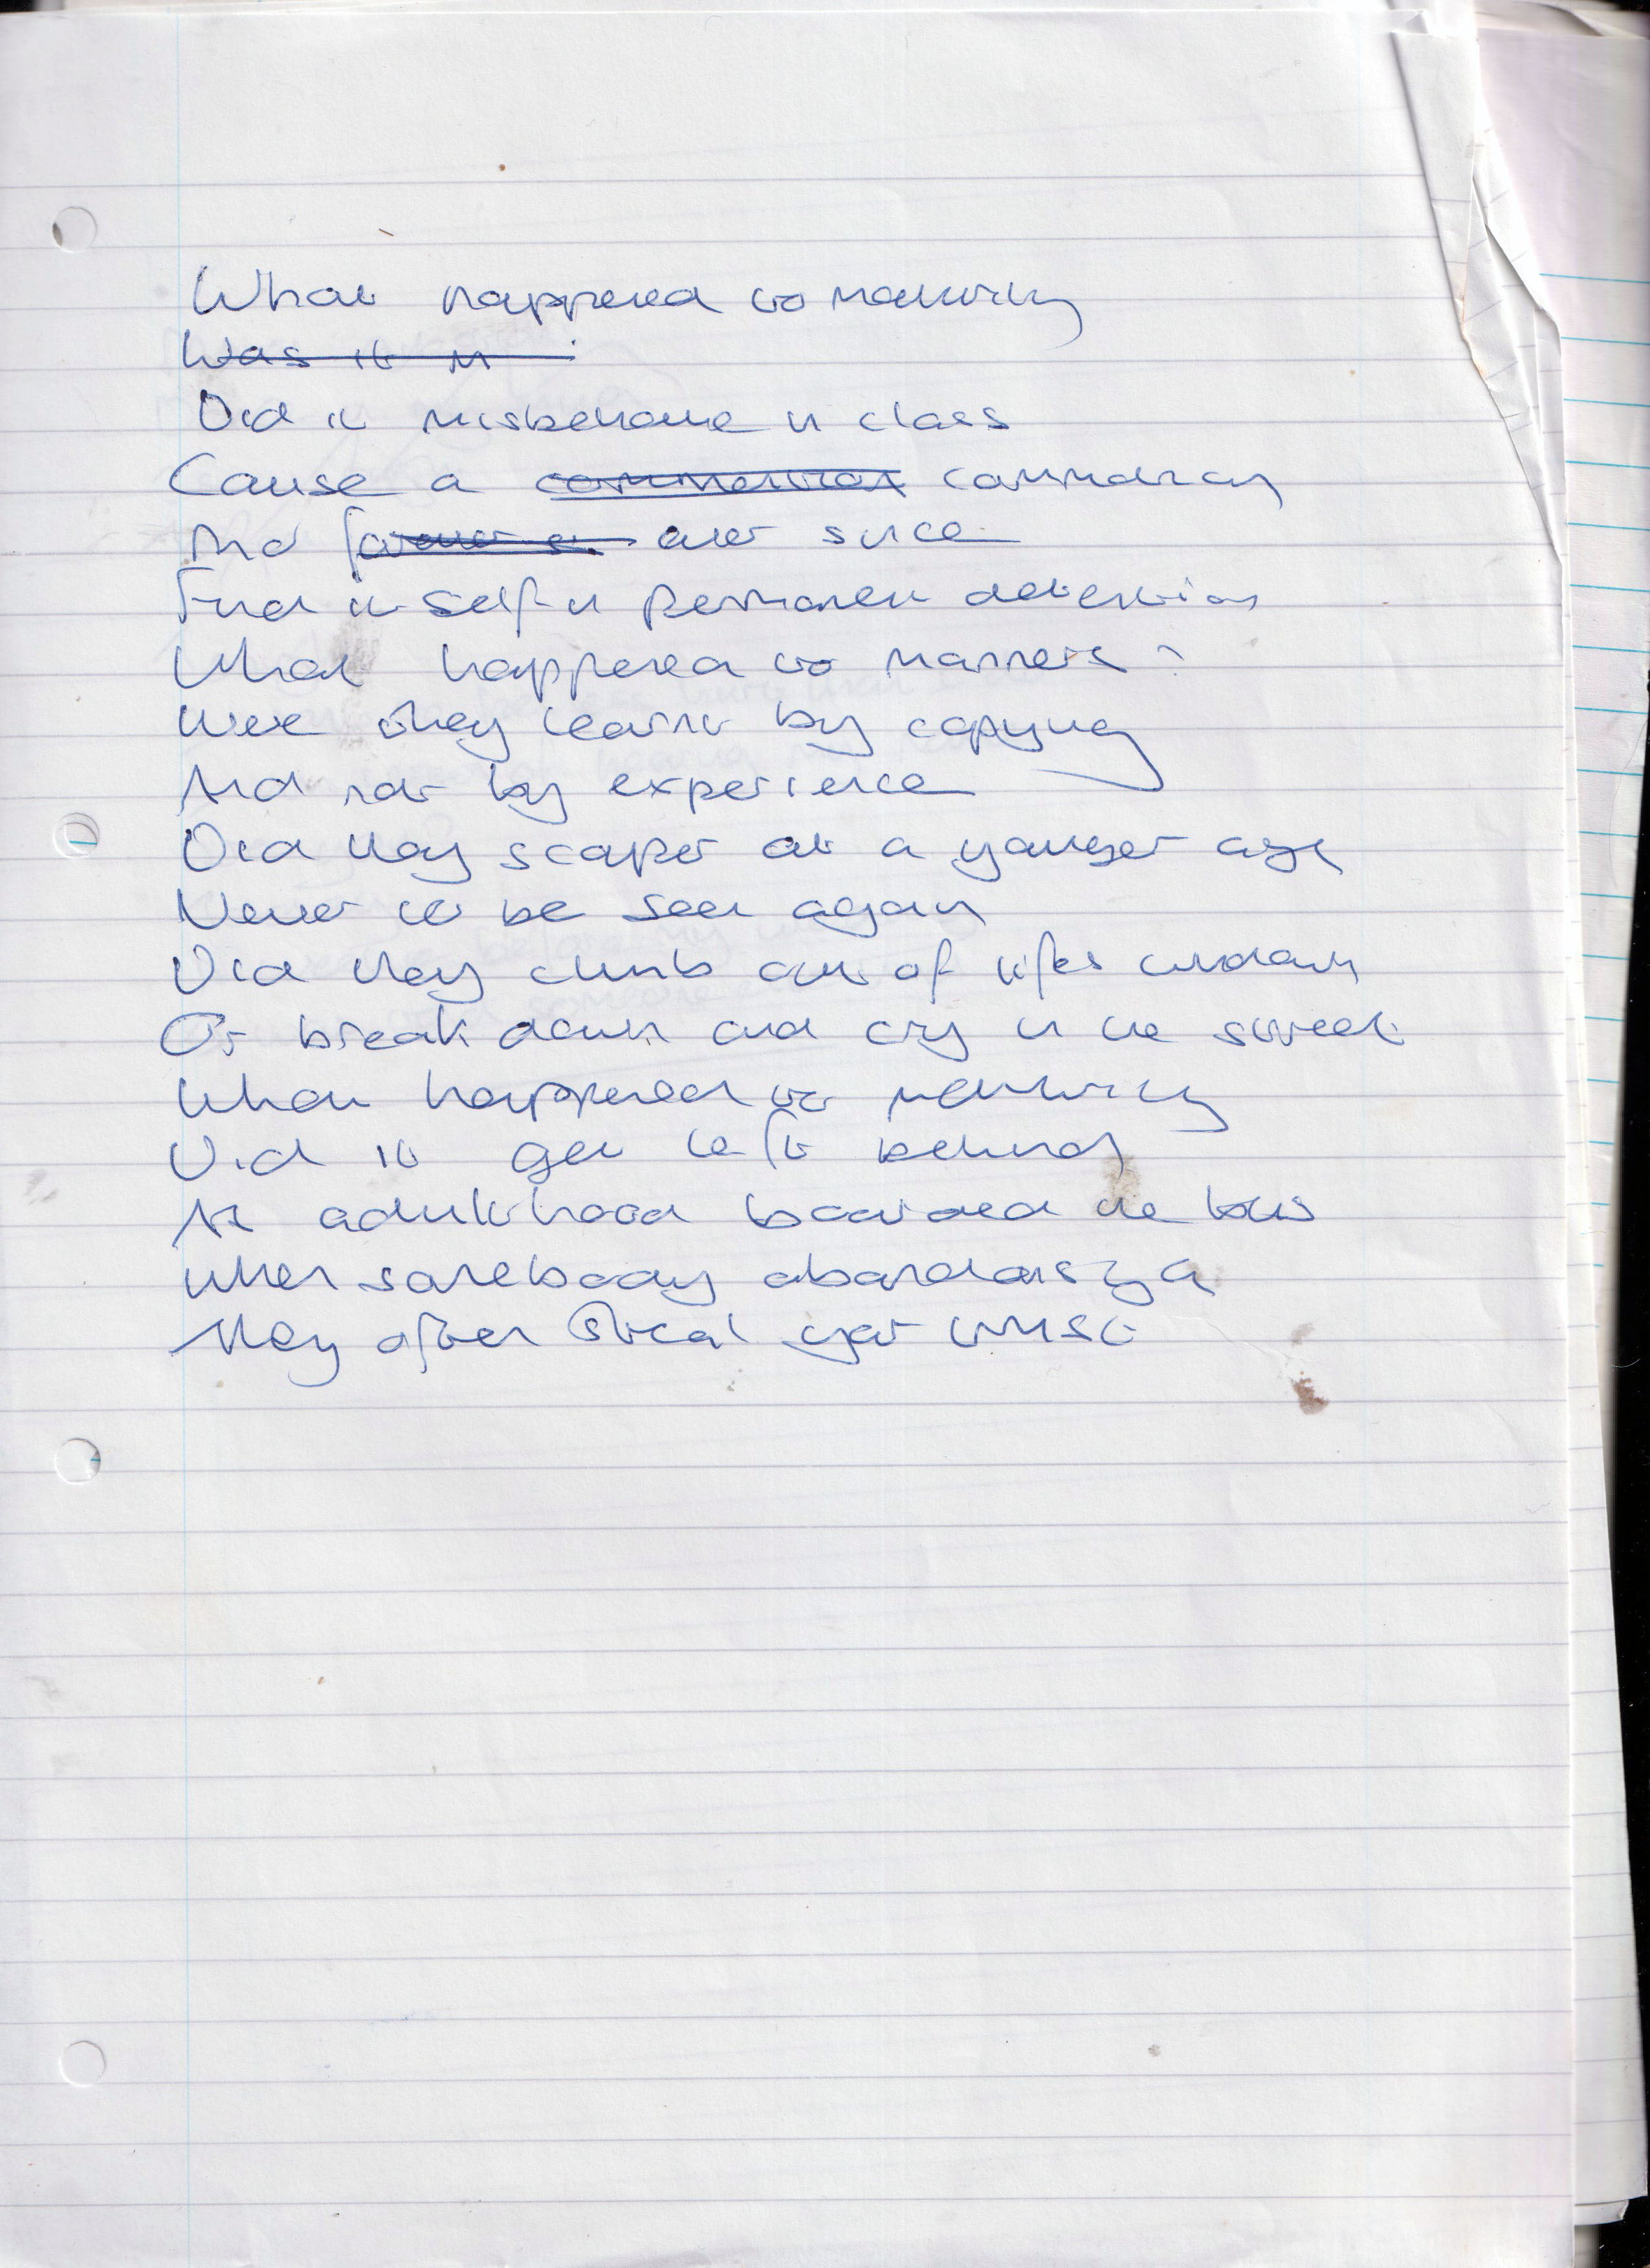 What happened to maturity
Was it m
Did it misbehave in class
Cause a commotion
And forever s ever since
Find it self in permanent detention
What happened to manners?
Were they learnt by copying
And not by experience
Did they scaper at a younger age
Never to be seen again
Did they climb out of lifes window
Or break down and cry in the street
What happened to maturity
Did it get left behind
As adulthood boarded the bus
When somebody abandons ya
They often steal your trust